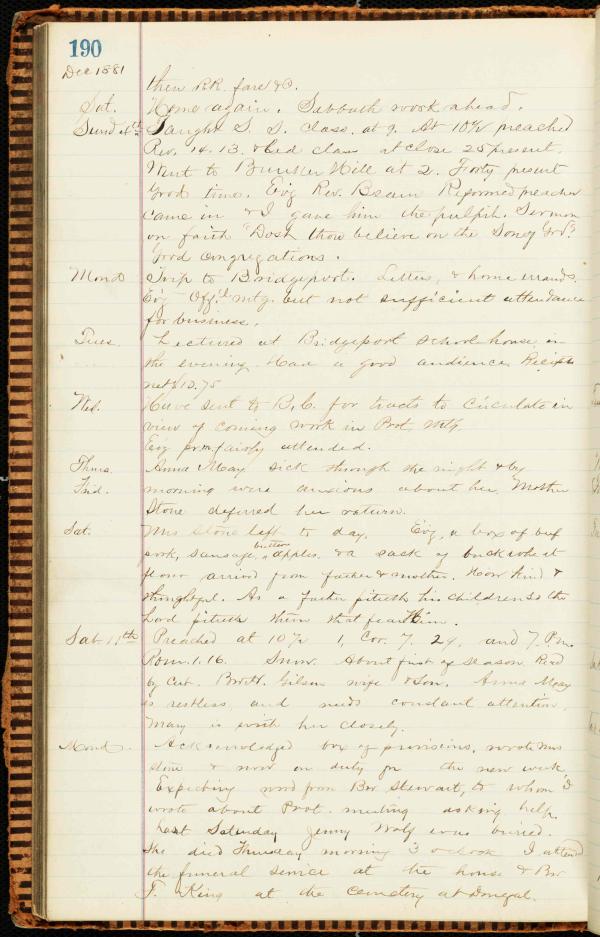 190
Dec 1881
then R.R. fare &c.
Sat. Home again. Sabbath work ahead.
Sund 4th Taught S. S. class at 9. At 10 1/2 preached
Rev. 14. 13. & led class at close 25 present.
Went to Bunker Hill at 2. Forty present
Good time. Evg Rev. Beam Reformed preacher
came in & I gave him the pulpit. Sermon
on faith "Dost thou believe on the Son of God".
Good congregations.
Mond Trip to Bridgeport. Letters, & home errands.
Evg Offl mtg. but not sufficient attendance
for business.
Tues. Lectured at Bridgeport school house in
the evening. Had a good audience. Receipts
net $10.75
Wed. Have sent to B. C. for tracts to circulate in
view of coming work in Prot. Mtg.
Evg pr. m. fairly attended.
Thurs. Anna May sick through the night & by
Frid. morning were anxious about her. Mother
Stone deferred her return.
Sat. Mrs Stone left to day. Evg, a box of beef
pork, sausage, butter, apples, & a sack of buckwheat
flour arrived from father & mother. How kind &
thoughtful. As a father pitieth his children so the
Lord pitieth them that fear Him.
Sab 11th Preached at 10 1/2 1, Cor. 7. 29, and 7. P.m.
Rom. 1. 16. Snow. About first of season. Recd
by Cert. Bro. H. Gilson wife & Son. Anna May
is restless and needs constant attention.
Mary is with her closely.
Mond. Acknowledged box of provisions, wrote Mrs
Stone & now on duty for the new week.
Expecting word from Bro Stewart, to whom I
wrote about Prot. meeting asking help.
Last Saturday Jenny Wolf was buried.
She died Thursday morning 3 oclock I attend
the funeral service at the house & Bro
T. King at the cemetery at Donegal.